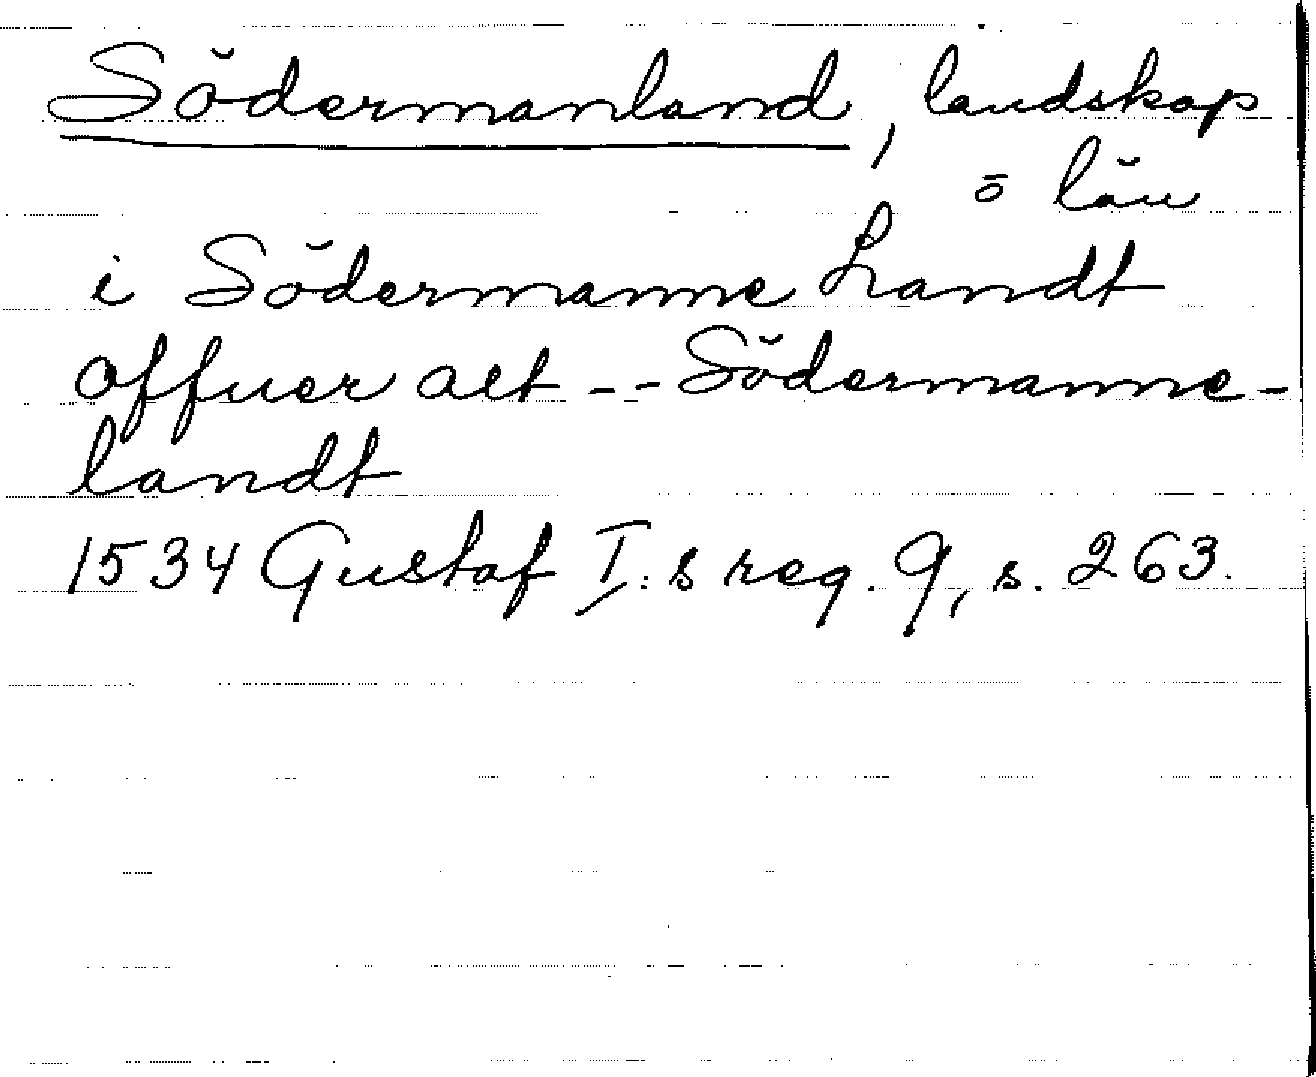 Södermanland, landskap
o län
i Södermanne Landt
offuer alt -- Södermanne-
landt
1534 Gustaf I:s reg. 9, s. 263.